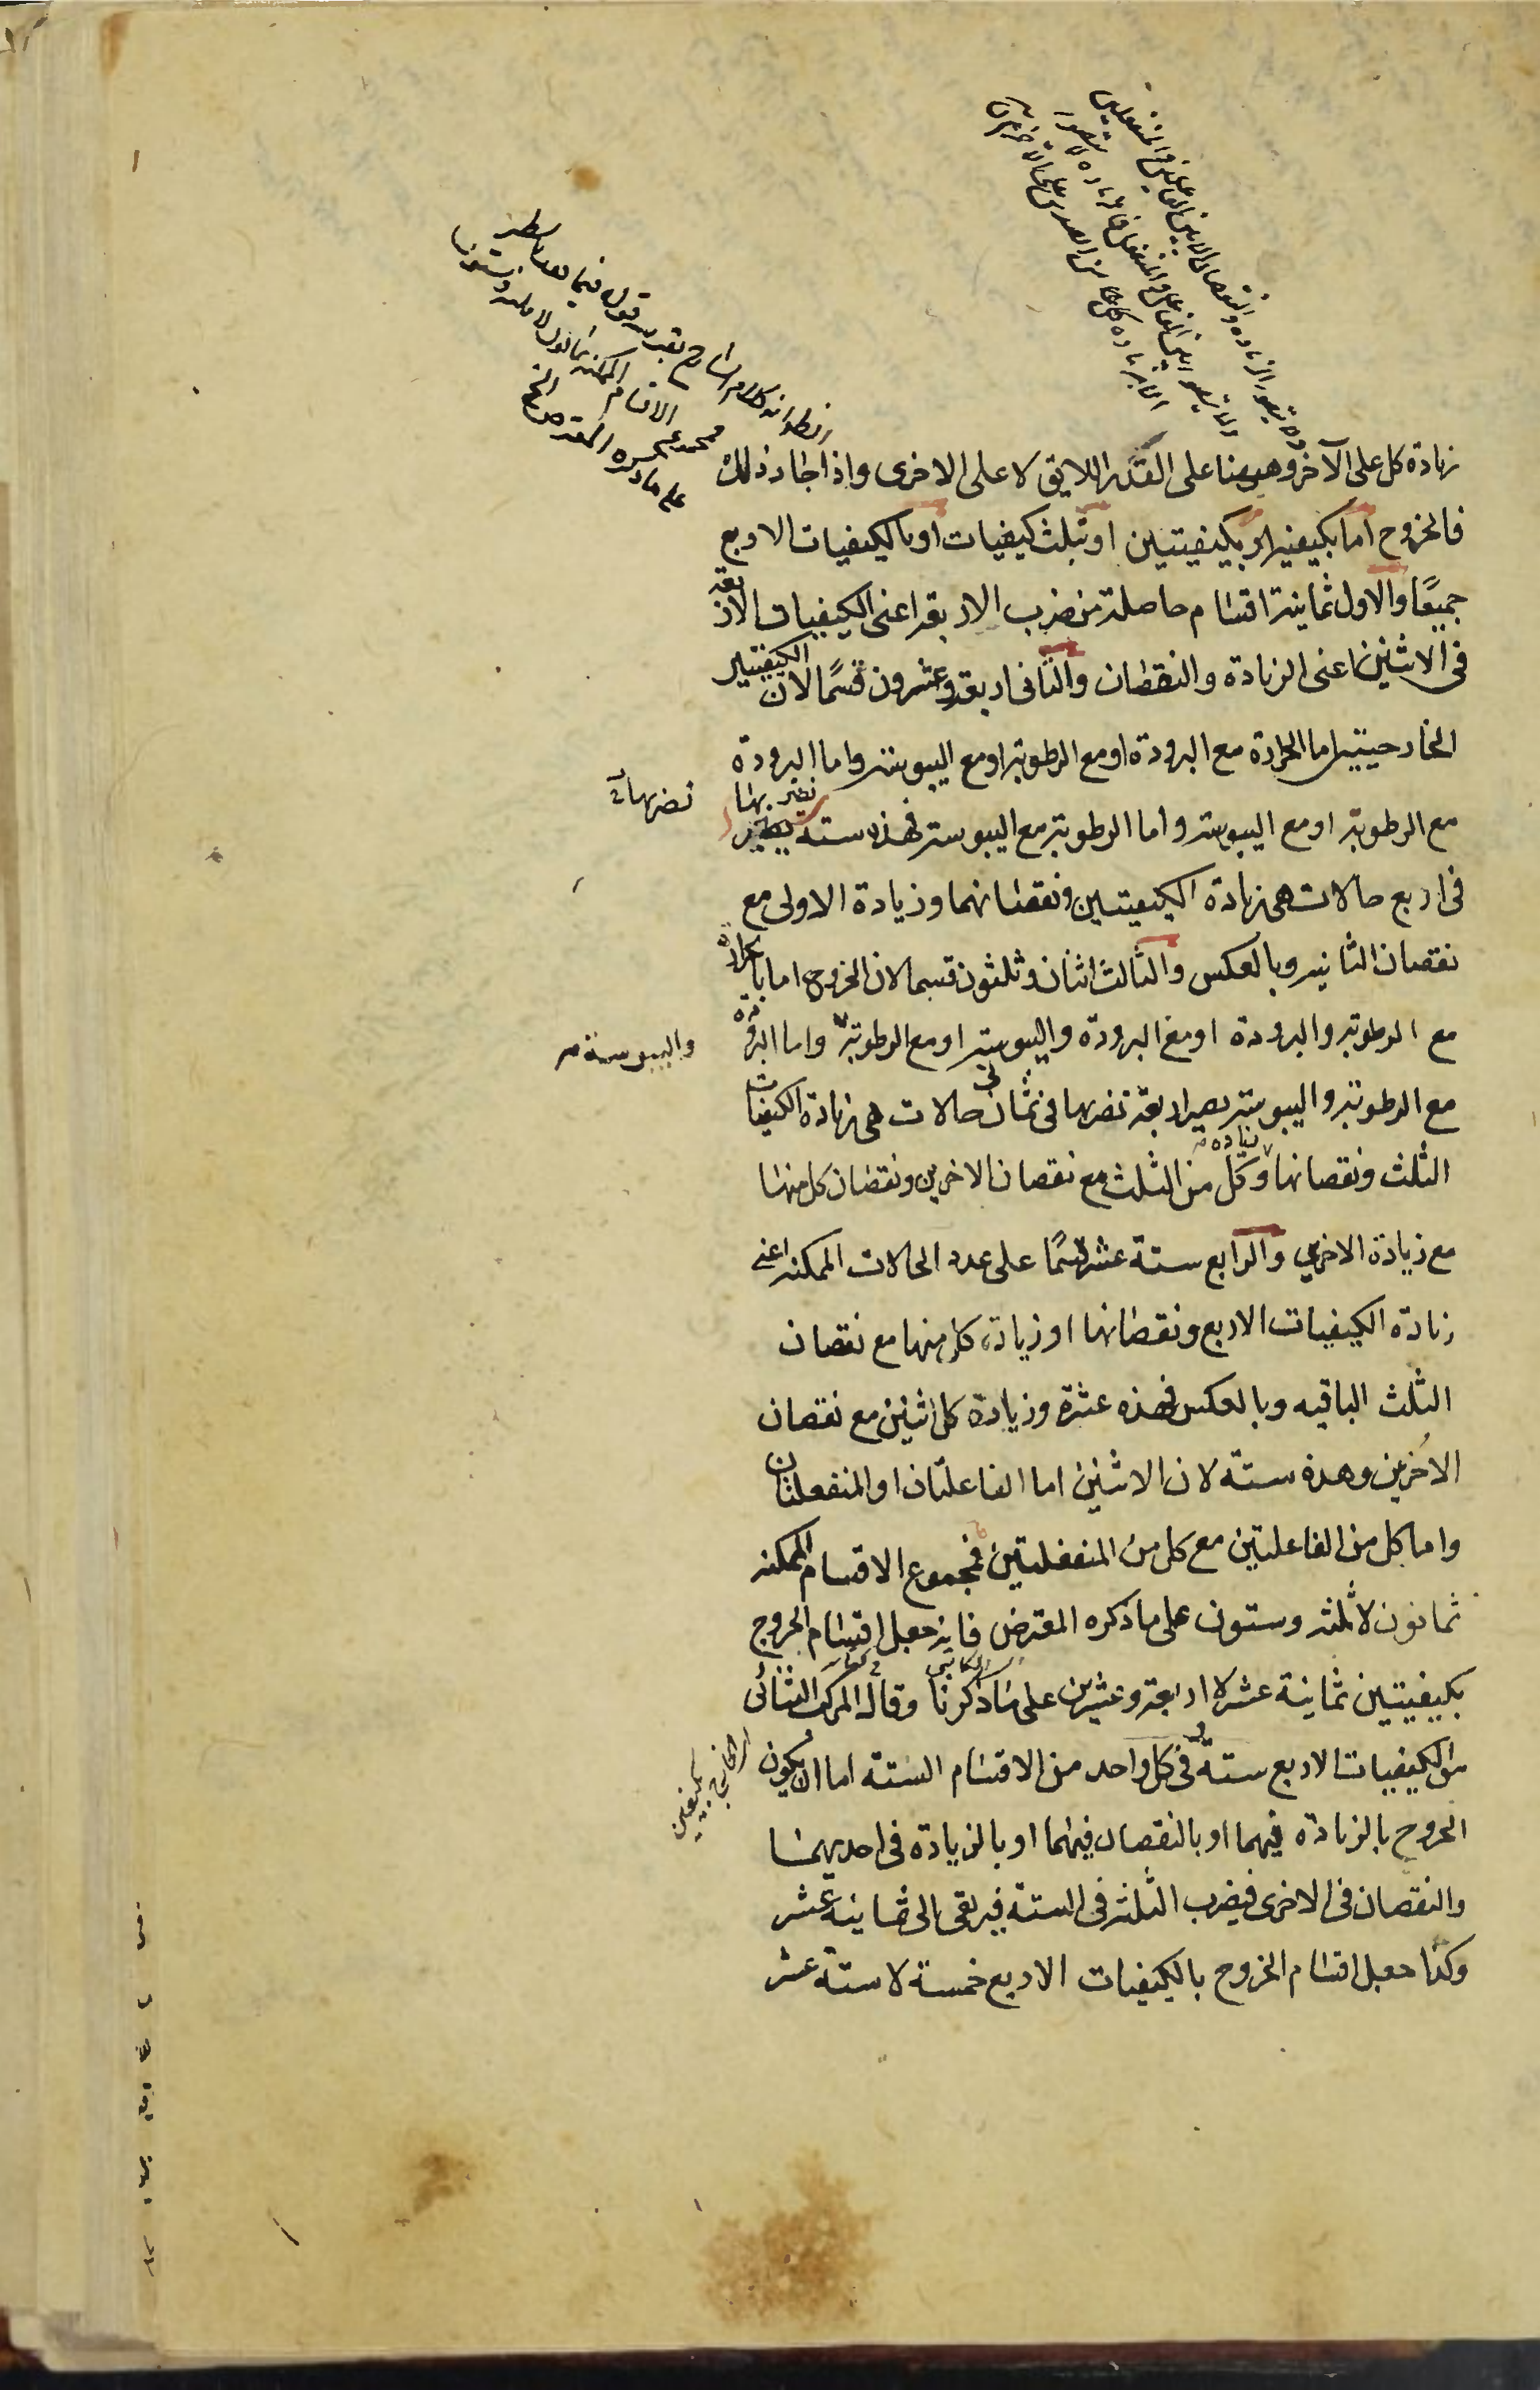 زيادة كل على الآخر وههنا على القدر اللايق لا على الاخرى واذا جاز ذلك
فالخروج اما بكيفية او بكيفيتين او بثلث كيفيات او بالكيفيات الاربع
جميعًا والاول ثمانية اقسام حاصلة من ضرب الاربعة اعنى الكيفيات الاربعة
فى الاثنين اعنى الزيادة والنقصان والثانى اربعة وعشرون قسمًا لان الكيفيتين
الخارجيتين اما الحرارة مع البرودة او مع الرطوبة او مع اليبوسة واما البرودة
مع الرطوبة او مع اليبوسة واما الرطوبة مع اليبوسة فهذه ستة نضربها
نضربها
فى اربع حالات هى زيادة الكيفيتين ونقصانهما وزيادة الاولى مع
نقصان الثانيه وبالعكس والثالث اثنان وثلثون قسما لان الخروج اما بالحرارة
مع الرطوبة والبرودة او مع البرودة واليبوسة او مع الرطوبة واما البرودة
واليبوسة
مع الرطوبة واليبوسة يصير اربعة نضربها فى ثمانى حالات هى زيادة الكيفيات
الثلث ونقصانها وزيادة كل من الثلث مع نقصان الاخريين ونقصان كل منها
مع زيادة الاخريين والرابع ستة عشر قسمًا على عدد الحالات الممكنه اعنى
زيادة الكيفيات الاربع ونقصانها او زيادة كل منها مع نقصان
الثلث الباقيه وبالعكس فهذه عشرة وزيادة كل اثنين مع نقصان
الاخرين وهذه ستة لان الاثنين اما الفاعلتان او المنفعلتان
واما كل من الفاعلتين مع كل من المنفعلتين فمجموع الاقسام الممكنه
ثمانون لا ثلثة وستون على ما ذكره المعترض فانه جعل اقسام الخروج
بكيفيتين ثمانية عشر لا اربعة وعشرين على ما ذكرنا وقال المركب الثنائى
من الكيفيات الاربع ستة وفى كل واحد من الاقسام الستة اما ان يكون
الخروج بالزيادة فيهما او بالنقصان فيهما او بالزيادة فى احديهما
والنقصان فى الاخرى فيضرب الثلثة فى الستة فيرتقى الى ثمانية عشر
وكذا جعل اقسام الخروج بالكيفيات الاربع خمسة لا ستة عشر